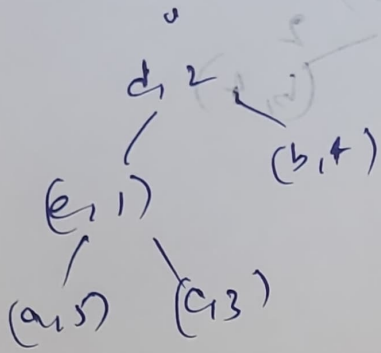 d, 2
(b, 4)
(e, 1)
(a, 5) (c, 3)